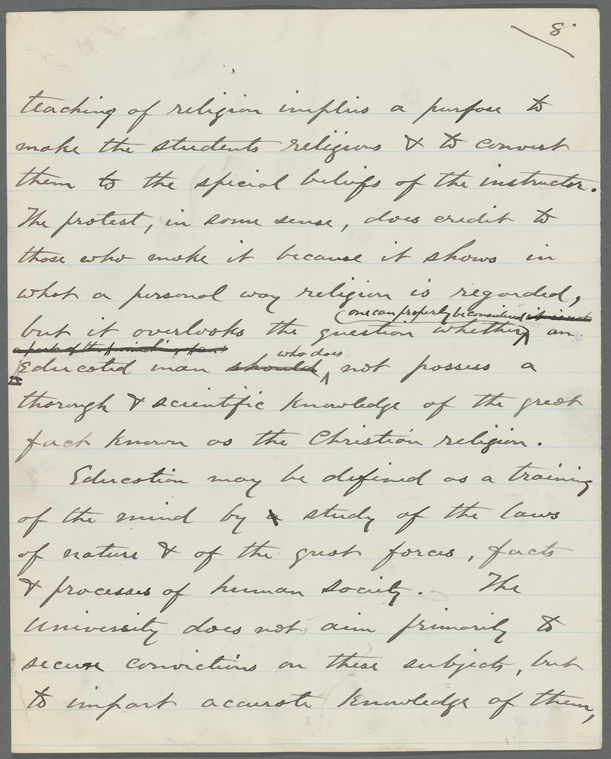 8
teaching of religion implies a purpose to
make the students religious & to convert
them to the special beliefs of the instructor.
The protest, in some sense, does credit to
those who make it because it shows in
what a personal way religion is regarded,
one can properly be considered
but it overlooks the question whether an
who does
Educated man should not possess a
thorough & scientific knowledge of the great
fact known as the Christian religion.
Education may be defined as a training
of the mind by a study of the laws
of nature & of the great forces, facts
& processes of human society. The
University does not aim primarily to
secure convictions on these subjects, but
to impart accurate knowledge of them,